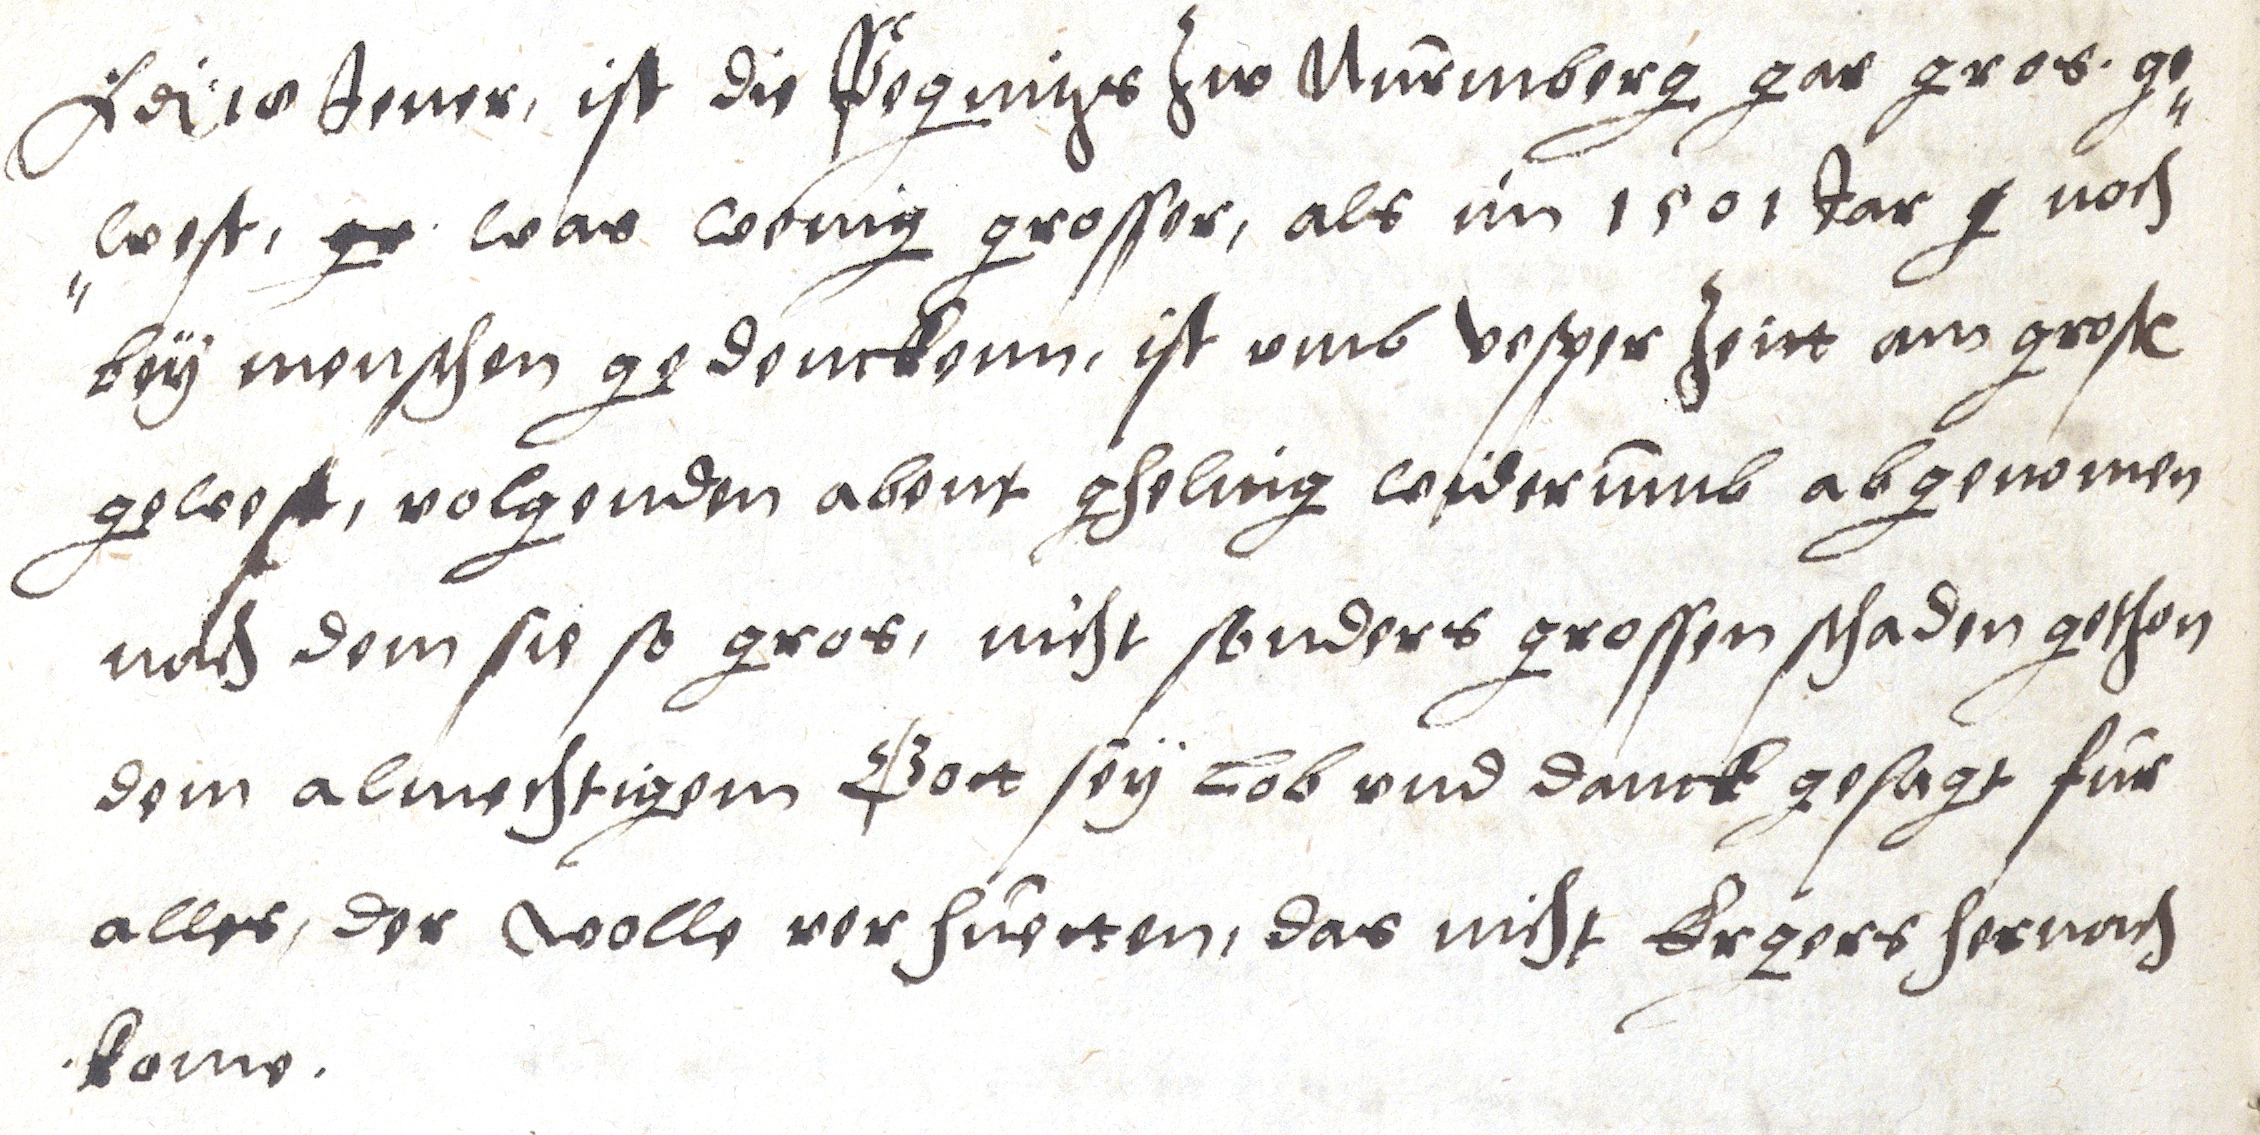 Adi 10 Jener, ist die Pegnitzs Zw Nurmberg gar gros. ge„
„west, gr. war wenig grosser, als im 1501 Jar g noch
beÿ menschen gedenckenn, ist umb vesper Zeitt am grost
gewest, volgenden abent gheling widerumb abgenomen
nach dem sie so gros, nicht sonders grossen schaden gethon
dem almechtigem Gott seÿ Lob und danck gesagt fur
alles, der wolle verhuetten, das nicht Ergers hernach
kome.